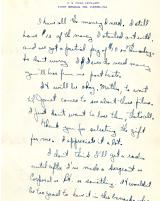 I have all the money I need. I still
have $15 of the money I started out with,
and we get a partial pay of $10 on Thursday.
So don't worry. If I ever do need money
you'll hear from me post haste.
It will be okay, Mother, to wait
till you come to see about those films.
I just don't want to lose them, that's all.
Thank you for selecting the gift
for me. I appreciate it a lot.
I don't think I'll get a radio
until after I'm made a Sergeant or
Corporal or Pfc. or something. It wouldn't
be too good to have it in the barracks when